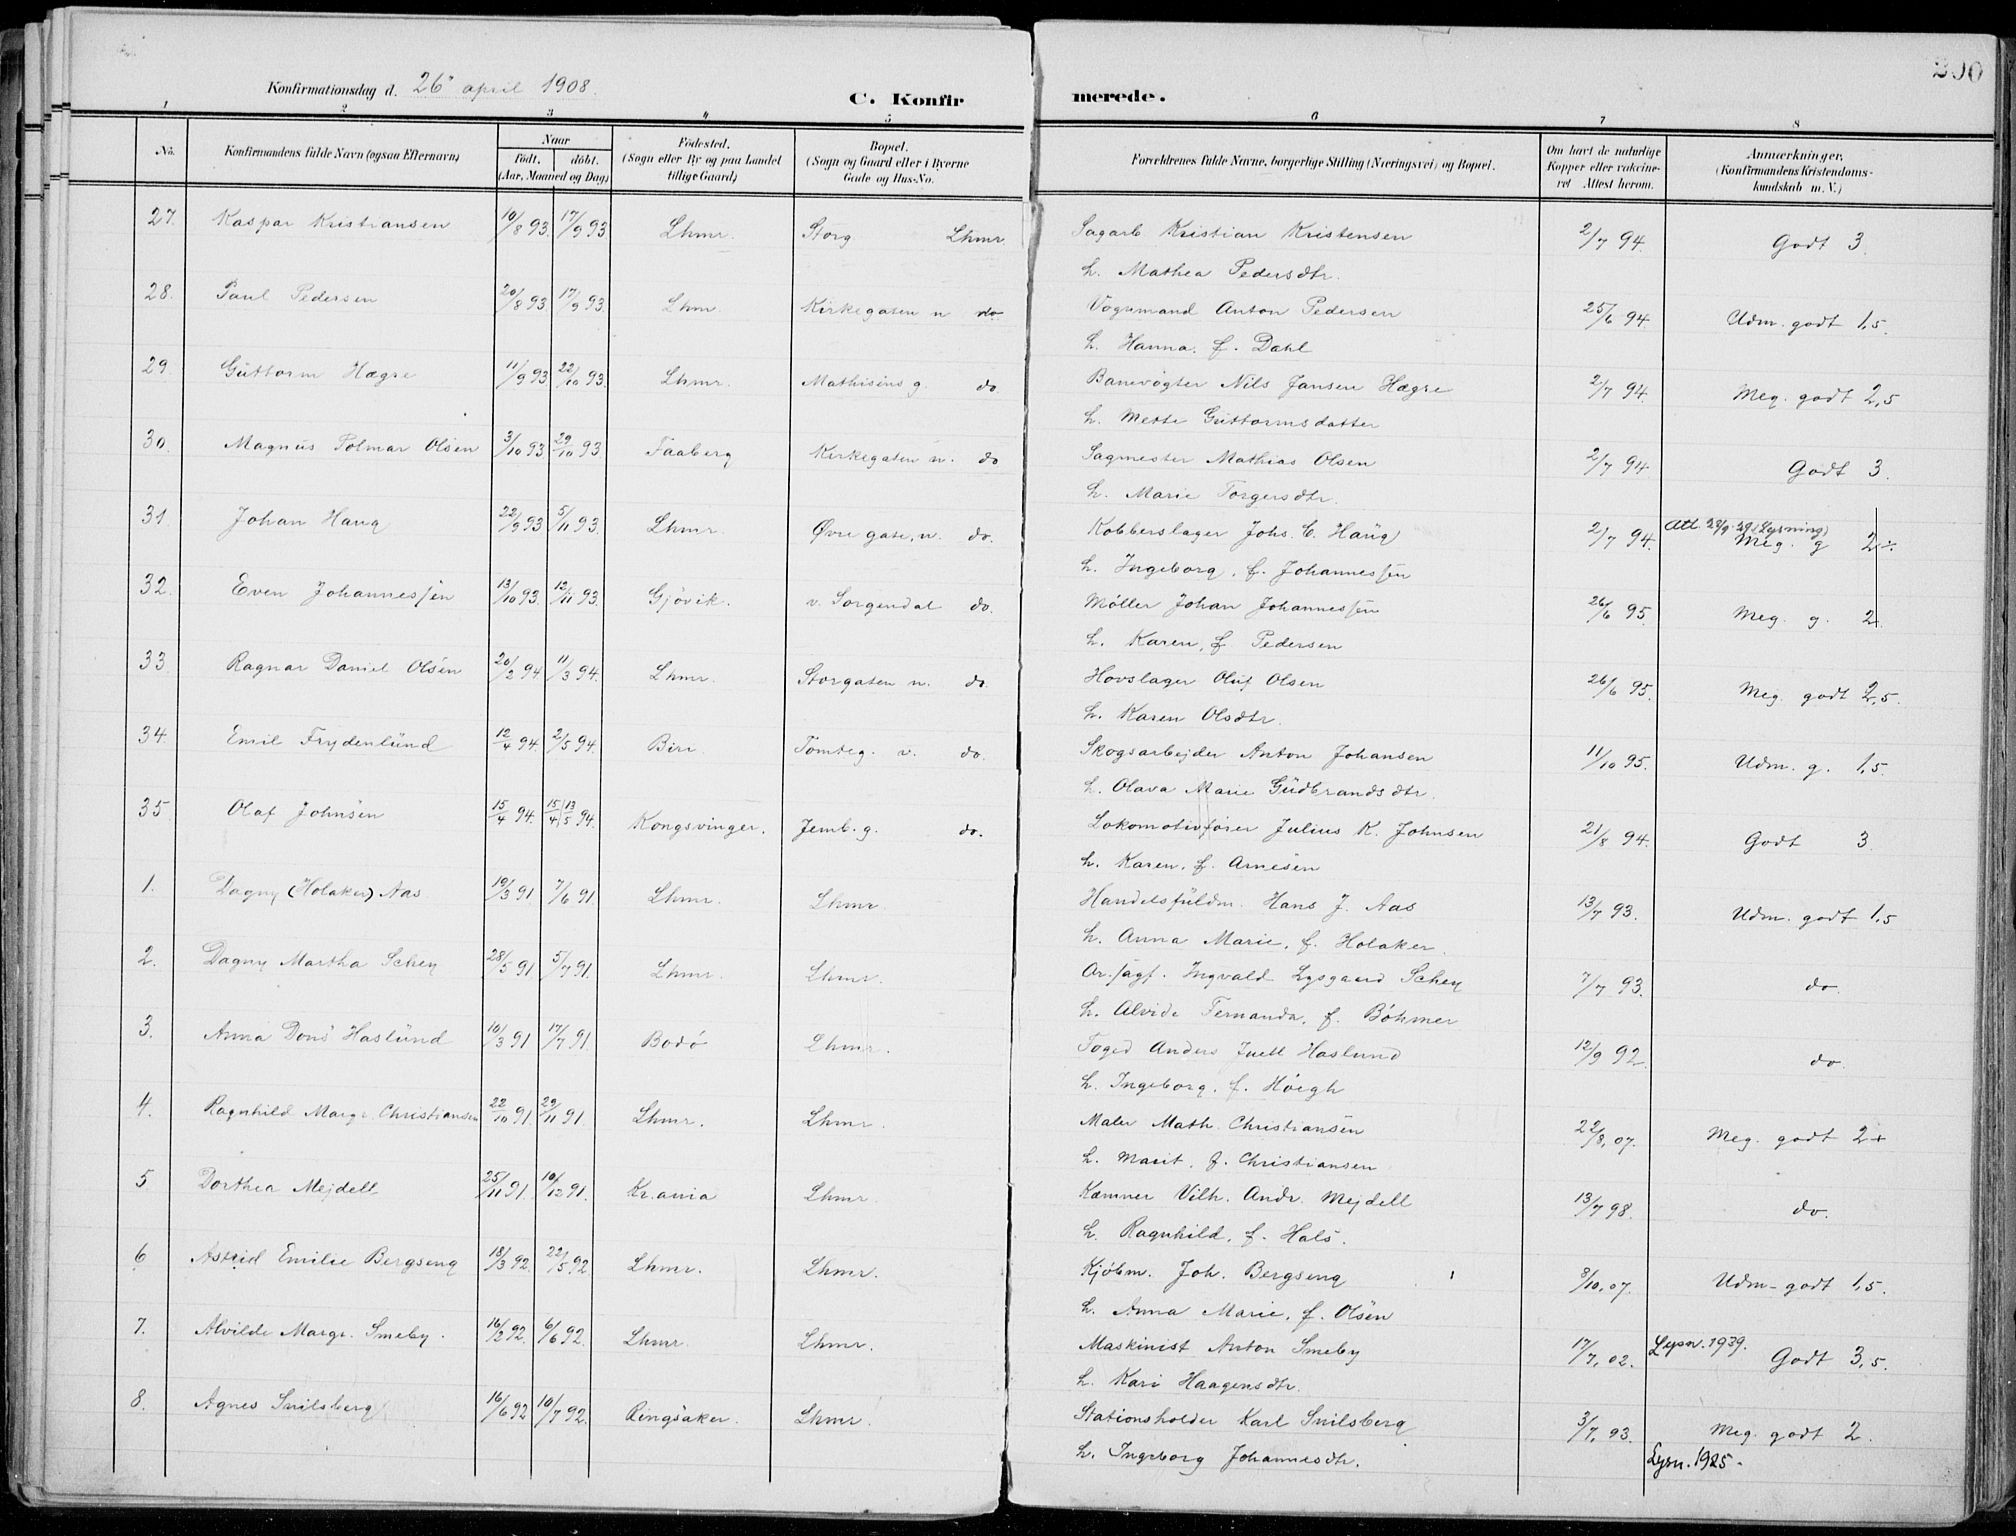 200
Konfirmationsdag d. 26' april 1908.
C. Konfirmerede.
1 2 3 4 5 6 7 8
No. Konfirmandens fulde Navn (ogsaa Efternavn) Naar født. døbt. (Aar, Maaned og Dag) Fødested. (Sogn eller By og paa Landet tillige Gaard) Bopæl. (Sogn og Gaard eller i Byerne Gade og Hus-No. Forældrenes fulde Navne, borgerlige Stilling (Næringsvei) og Bopæl. Om havt de naturlige Kopper eller vakcineret Attest herom. Anmærkninger, (Konfirmandens Kristendomskundskab m. V.)
27. Kaspar Kristiansen 10/8 93. 17/9 93 Lhmr. Storg Lhmr. Sagarb. Kristian Kristensen 2/7 94. Godt 3.
h. Mathea Pedersdtr.
28. Paul Pedersen 20/8 93 17/9 93. Lhmr Kirkegaten n do Vognmand Anton Pedersen 25/6 94. Udm. godt 1,5.
h. Hanna. f. Dahl
29. Guttorm Hægre 11/9 93 22/10 93. Lhmr. Mathisens g. do Banevogter Nils Jansen Hægre 2/7 94. Meg. godt 2,5
h. Mette Guttormsdatter
30. Magnus Tolmar Olsen 3/10 93 29/10 93. Faaberg Kirkegaten n. do Sagmester Mathias Olsen 2/7 94 Godt 3.
h. Marie Torgersdtr.
31. Johan Haug 22/9 93 5/11 93. Lhmr. Øvre gate, n. do. Kobberslager Johs. C. Haug 2/7 94. Att. 23/9 29 (Lysning) Meg. g 2 ÷
h. Ingeborg, f. Johannessen
32. Even Johannessen 13/10 93. 12/11 93. Gjøvik. v. Sorgendal do. Møller Johan Johannessen 26/6 95. Meg. g. 2.
h. Karen, f Pedersen
33. Ragnar Daniel Olsen 20/2 94 11/3 94. Lhmr. Storgaten n. do. Hovslager Oluf Olsen 26/6 95. Meg. godt 2,5.
h. Karen Olsdtr.
34. Emil Frydenlund 12/4 94 2/5 94. Biri Tomteg. v. do. Skogsarbejder Anton Johansen 11/10 95. Udm. g. 1,5.
h. Olava Marie Gudbrandsdtr.
35 Olaf Johnsen 15/4 94. 15/4 13/5 94. Kongsvinger. Jernb. g. do. Lokomotivfører Julius K. Johnsen 21/8 94. Godt 3
h. Karen, f. Arnesen
1. Dagny (Holaker) Aas 19/3 91 7/6 91. Lhmr. Lhmr. Handelsfuldm. Hans J. Aas 13/7 93. Udm. godt 1,5
h. Anna Marie, f. Holaker.
2. Dagny Martha Schey 28/5 91 5/7 91. Lhmr. Lhmr. Ingvald Lysgaard Schey 7/7 93. do.
h. Alvide Fernanda, f. Bøhmer
3. Anna Dons Haslund 10/3 91 17/7 91. Bodø Lhmr. Foged Anders Juell Haslund 12/9 92. do.
h. Ingeborg, f. Høegh
4. Ragnhild Margr. Christiansen 22/10 91. 29/11 91. Lhmr. Lhmr. Maler Math. Christiansen 22/8, 07. Meg. godt 2+
h. Marit, f. Christiansen
5 Dorthea Mejdell 25/11 91. 10/12 91. Kr.ania Lhmr. Kæmner Vilh. Andr. Mejdell 13/7 98. do.
h. Ragnhild, f. Hals.
6 Astrid Emilie Bergseng 18/3 92. 22/5 92 Lhmr. Lhmr. Kjøbm. Joh. Bergseng 8/10, 07. Udm- godt 1,5.
h. Anna Marie, f. Olsen
7. Alvilde Margr. Smeby. 16/2 92. 6/6 92. Lhmr. Lhmr. Maskinist Anton Smeby 17/7, 02. Lysn. 1939. Godt 3,5.
h. Kari Haagensdtr.
8. Agnes Snilsberg 16/6 92 10/7 92. Ringsaker. Lhmr. Stationsholder Karl Snilsberg 3/7, 93. Meg. godt 2.
h. Ingeborg Johannesdtr. Lysn. 1925.